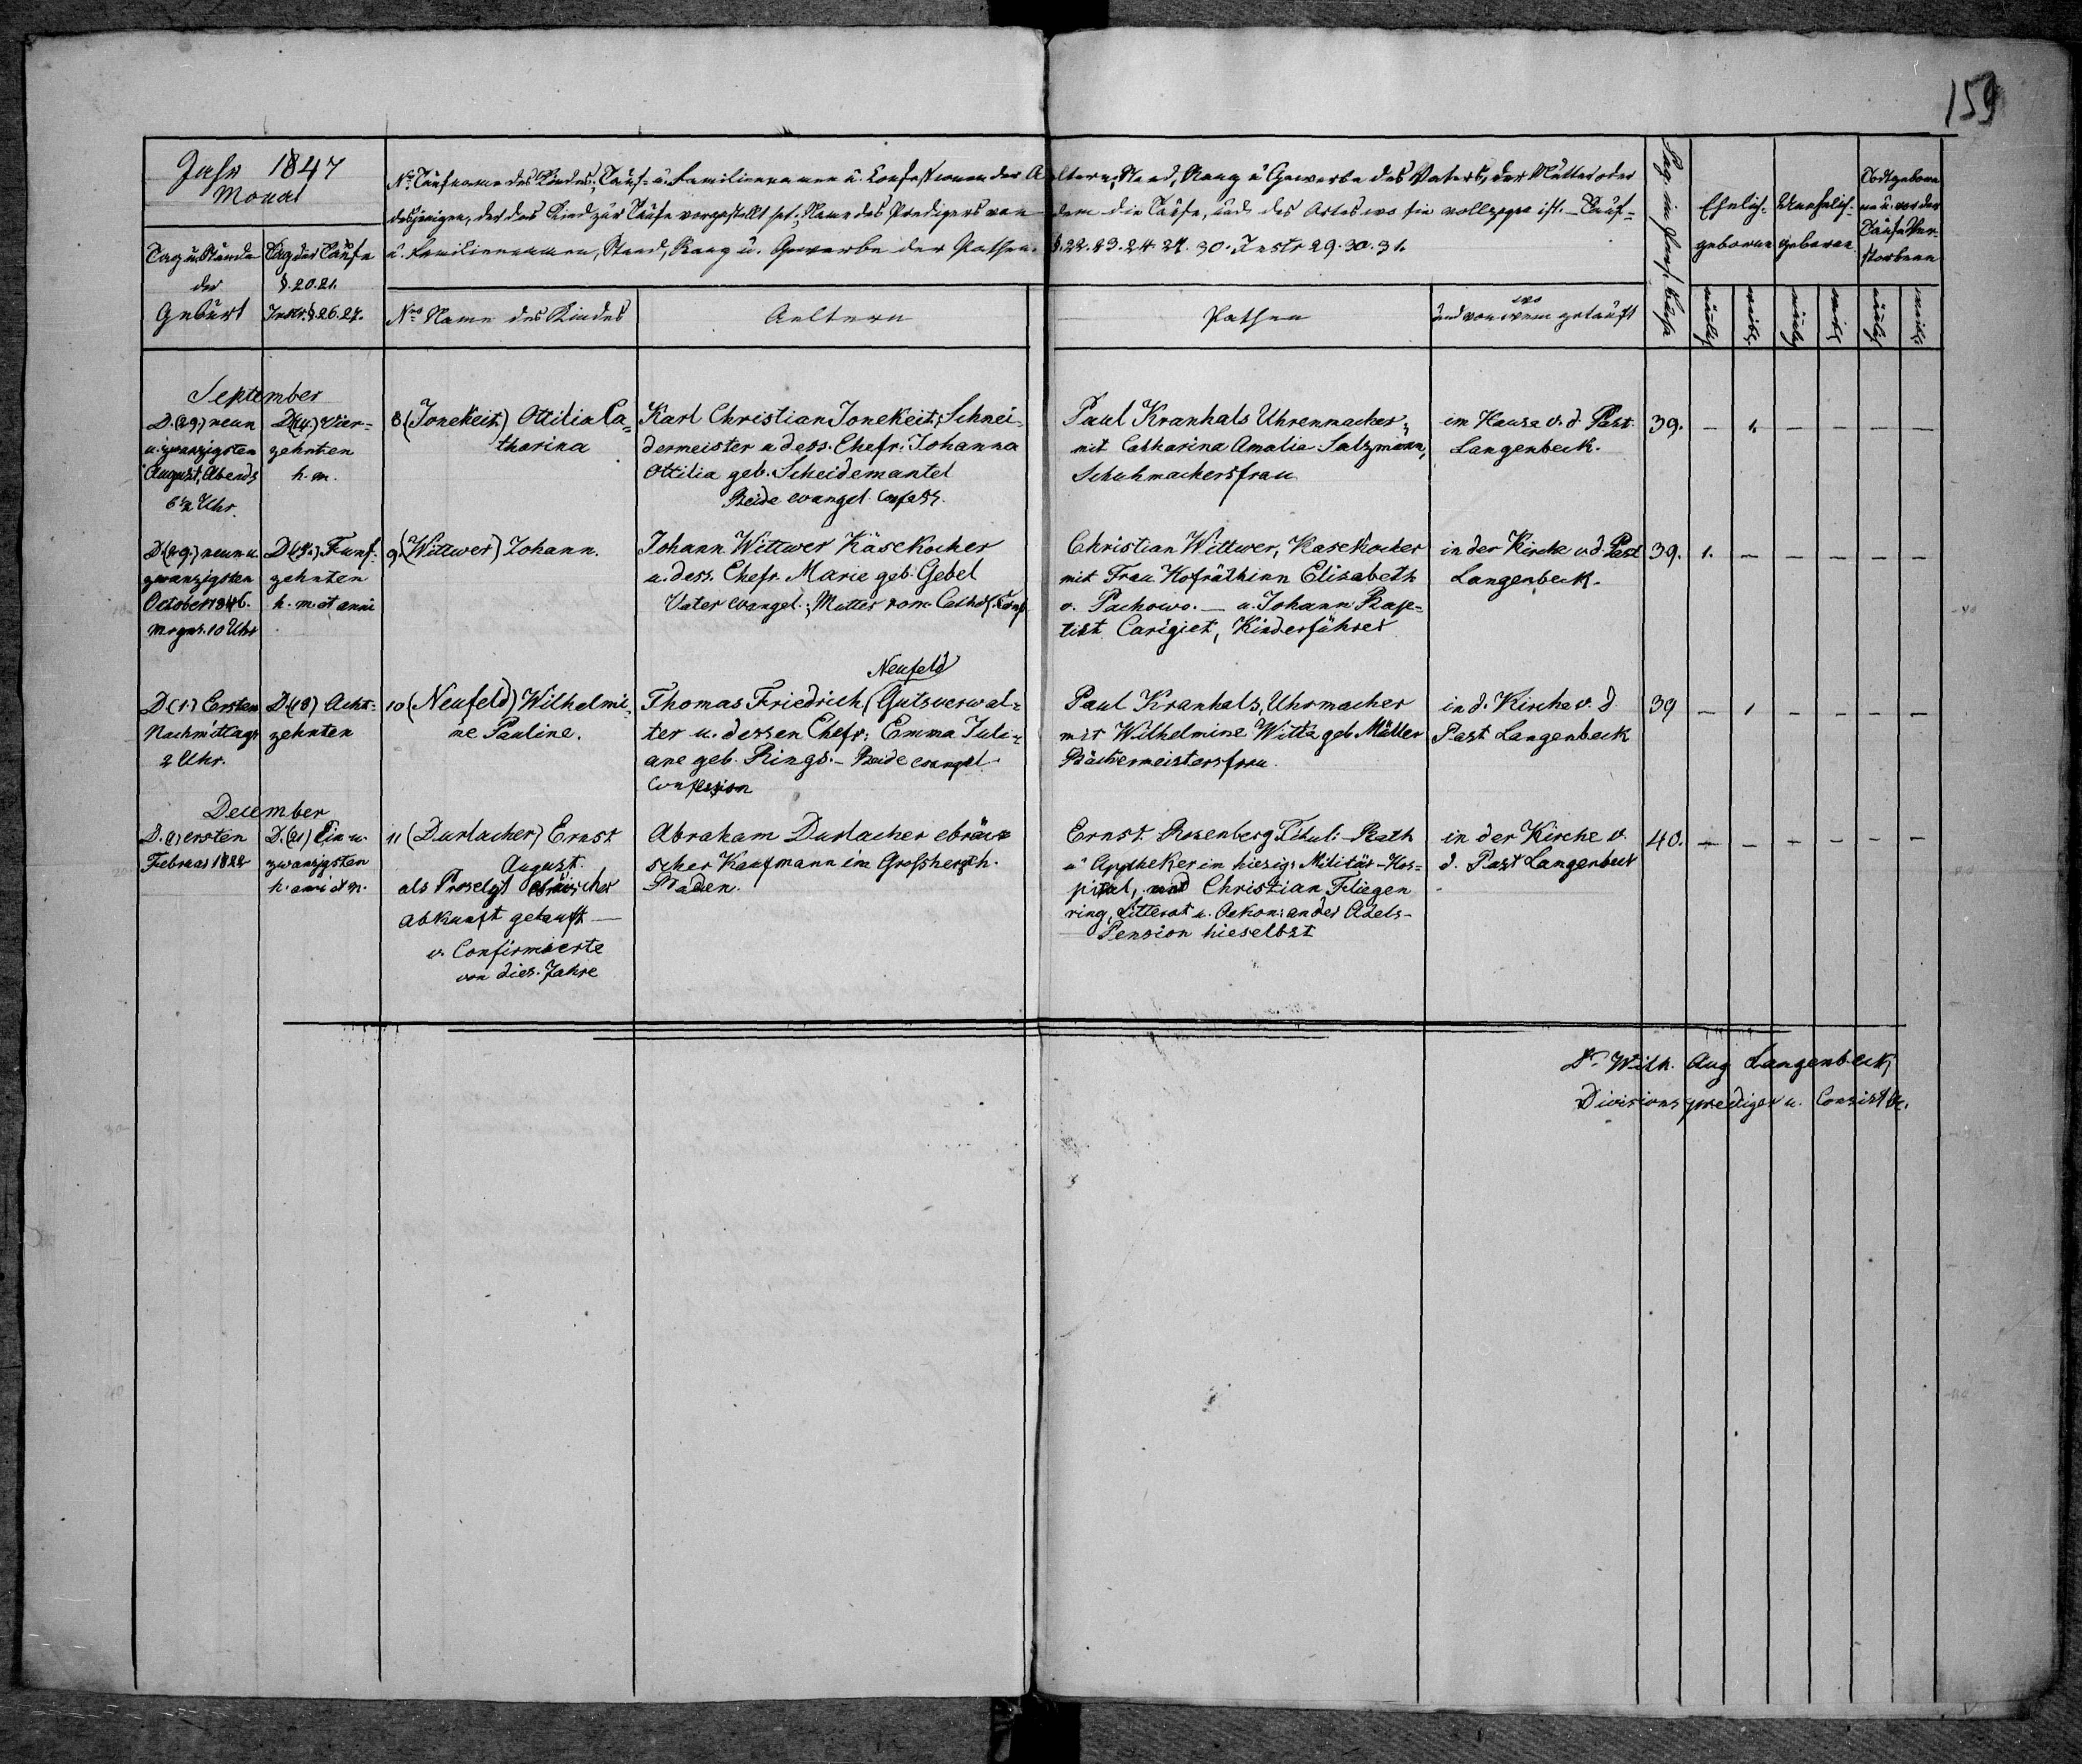 159
Jahr 1847
Monat
Tag u. Stunde
der
Geburt
Tag der Taufe
§. 20.21.
Instr. § 26.27.
No. Taufname des Kindes; Tauf- u. Familiennamen u. Confessionen der Aeltern, Stand, Rang u. Gewerbe des Vaters, der Mutter oder
desjenigen, der das Kind zur Taufe vorgestellt hat; Name des Predigers von dem die Taufe, und des Ortes wo sie vollzogen ist. – Tauf-
u. Familiennamen, Stand, Rang u. Gewerbe der Pathen. §. 22.23.24.27.30. Instr 29.30.31.
Nro Name des Kindes
Aeltern
Pathen
wo
und von wem getauft
Ehelich-
geboren
Unehelich-
geboren
Todtgebore-
ne u. vor der
Taufe Ver-
storbene
männl.
weibl.
männl.
weibl.
männl.
weibl.
September
D. (29.) neun
u. zwanzigsten
August, Abends
6½ Uhr.
D. (14.) Vier-
zehnten
h. m.
8 (Jonekeit.) Ottilia Ca-
tharina
Karl Christian Jonekeit, Schnei-
dermeister u dess. Ehefr. Johanna
Ottilia geb. Scheidemantel
Beide evangel. Confess.
Paul Kranhals Uhrenmacher,
mit Catharina Amalia Salzmann,
Schuhmachersfrau
im Hause v. d. Past.
Langenbeck.
39. – 1. – – – –
D. (29.) neun u.
zwanzigsten
October 1846.
Morgns. 10 Uhr
D. (15.) Funf-
zehnten
h. m. et anni
9. (Wittwer) Johann.
Johann Wittwer Käsekocher
u. dess. Ehefr. Marie geb. Gebel
Vater evangel.; Mutter rom. Cathol. Conf.
Christian Wittwer, Kasekocher
mit Frau Hofräthinn Elisabeth
v. Pachowo. – u. Johann Bap-
tist Carigiet, Kinderführer
in der Kirche v. d. Past
Langenbeck.
39. 1. – – – – –
D (1.) Ersten
Nachmittags
2 Uhr.
D. (18) Acht-
zehnten
10 (Neufeld) Wilhelmi-
ne Pauline.
Neufeld
Thomas Friedrich (Gutsverwal-
ter u. dessen Ehefr: Emma Juli-
ane geb. Rings. – Beide evangel.
Confession
Paul Kranhals, Uhrmacher
mit Wilhelmine Witta geb. Müller
Bäckermeistersfrau.
in d. Kirche v. d.
Past Langenbeck
39 – 1 – – – –
December
D. (1) ersten
Februar 1822
D. (21) Ein u.
zwanzigsten
h. anni et m.
11 (Durlacher) Ernst
August.
als Proselyt ebräischer
Abkunft getauft –
v. Confirmierte
von dies. Jahre
Abraham Durlacher ebräi-
scher Kaufmann im Großherzth.
Baden.
Ernst Rosenberg Titul: Rath
u. Apotheker im hiesig: Militär-Hos-
pital, und Christian Fliegen
ring, Litterat u. Oekon: an der Adels-
Pension hieselbst
in der Kirche v.
d. Past Langenbeck
40. – – – – – –
Dr. Wilh. Aug Langenbeck,
Divisionsprediger u.